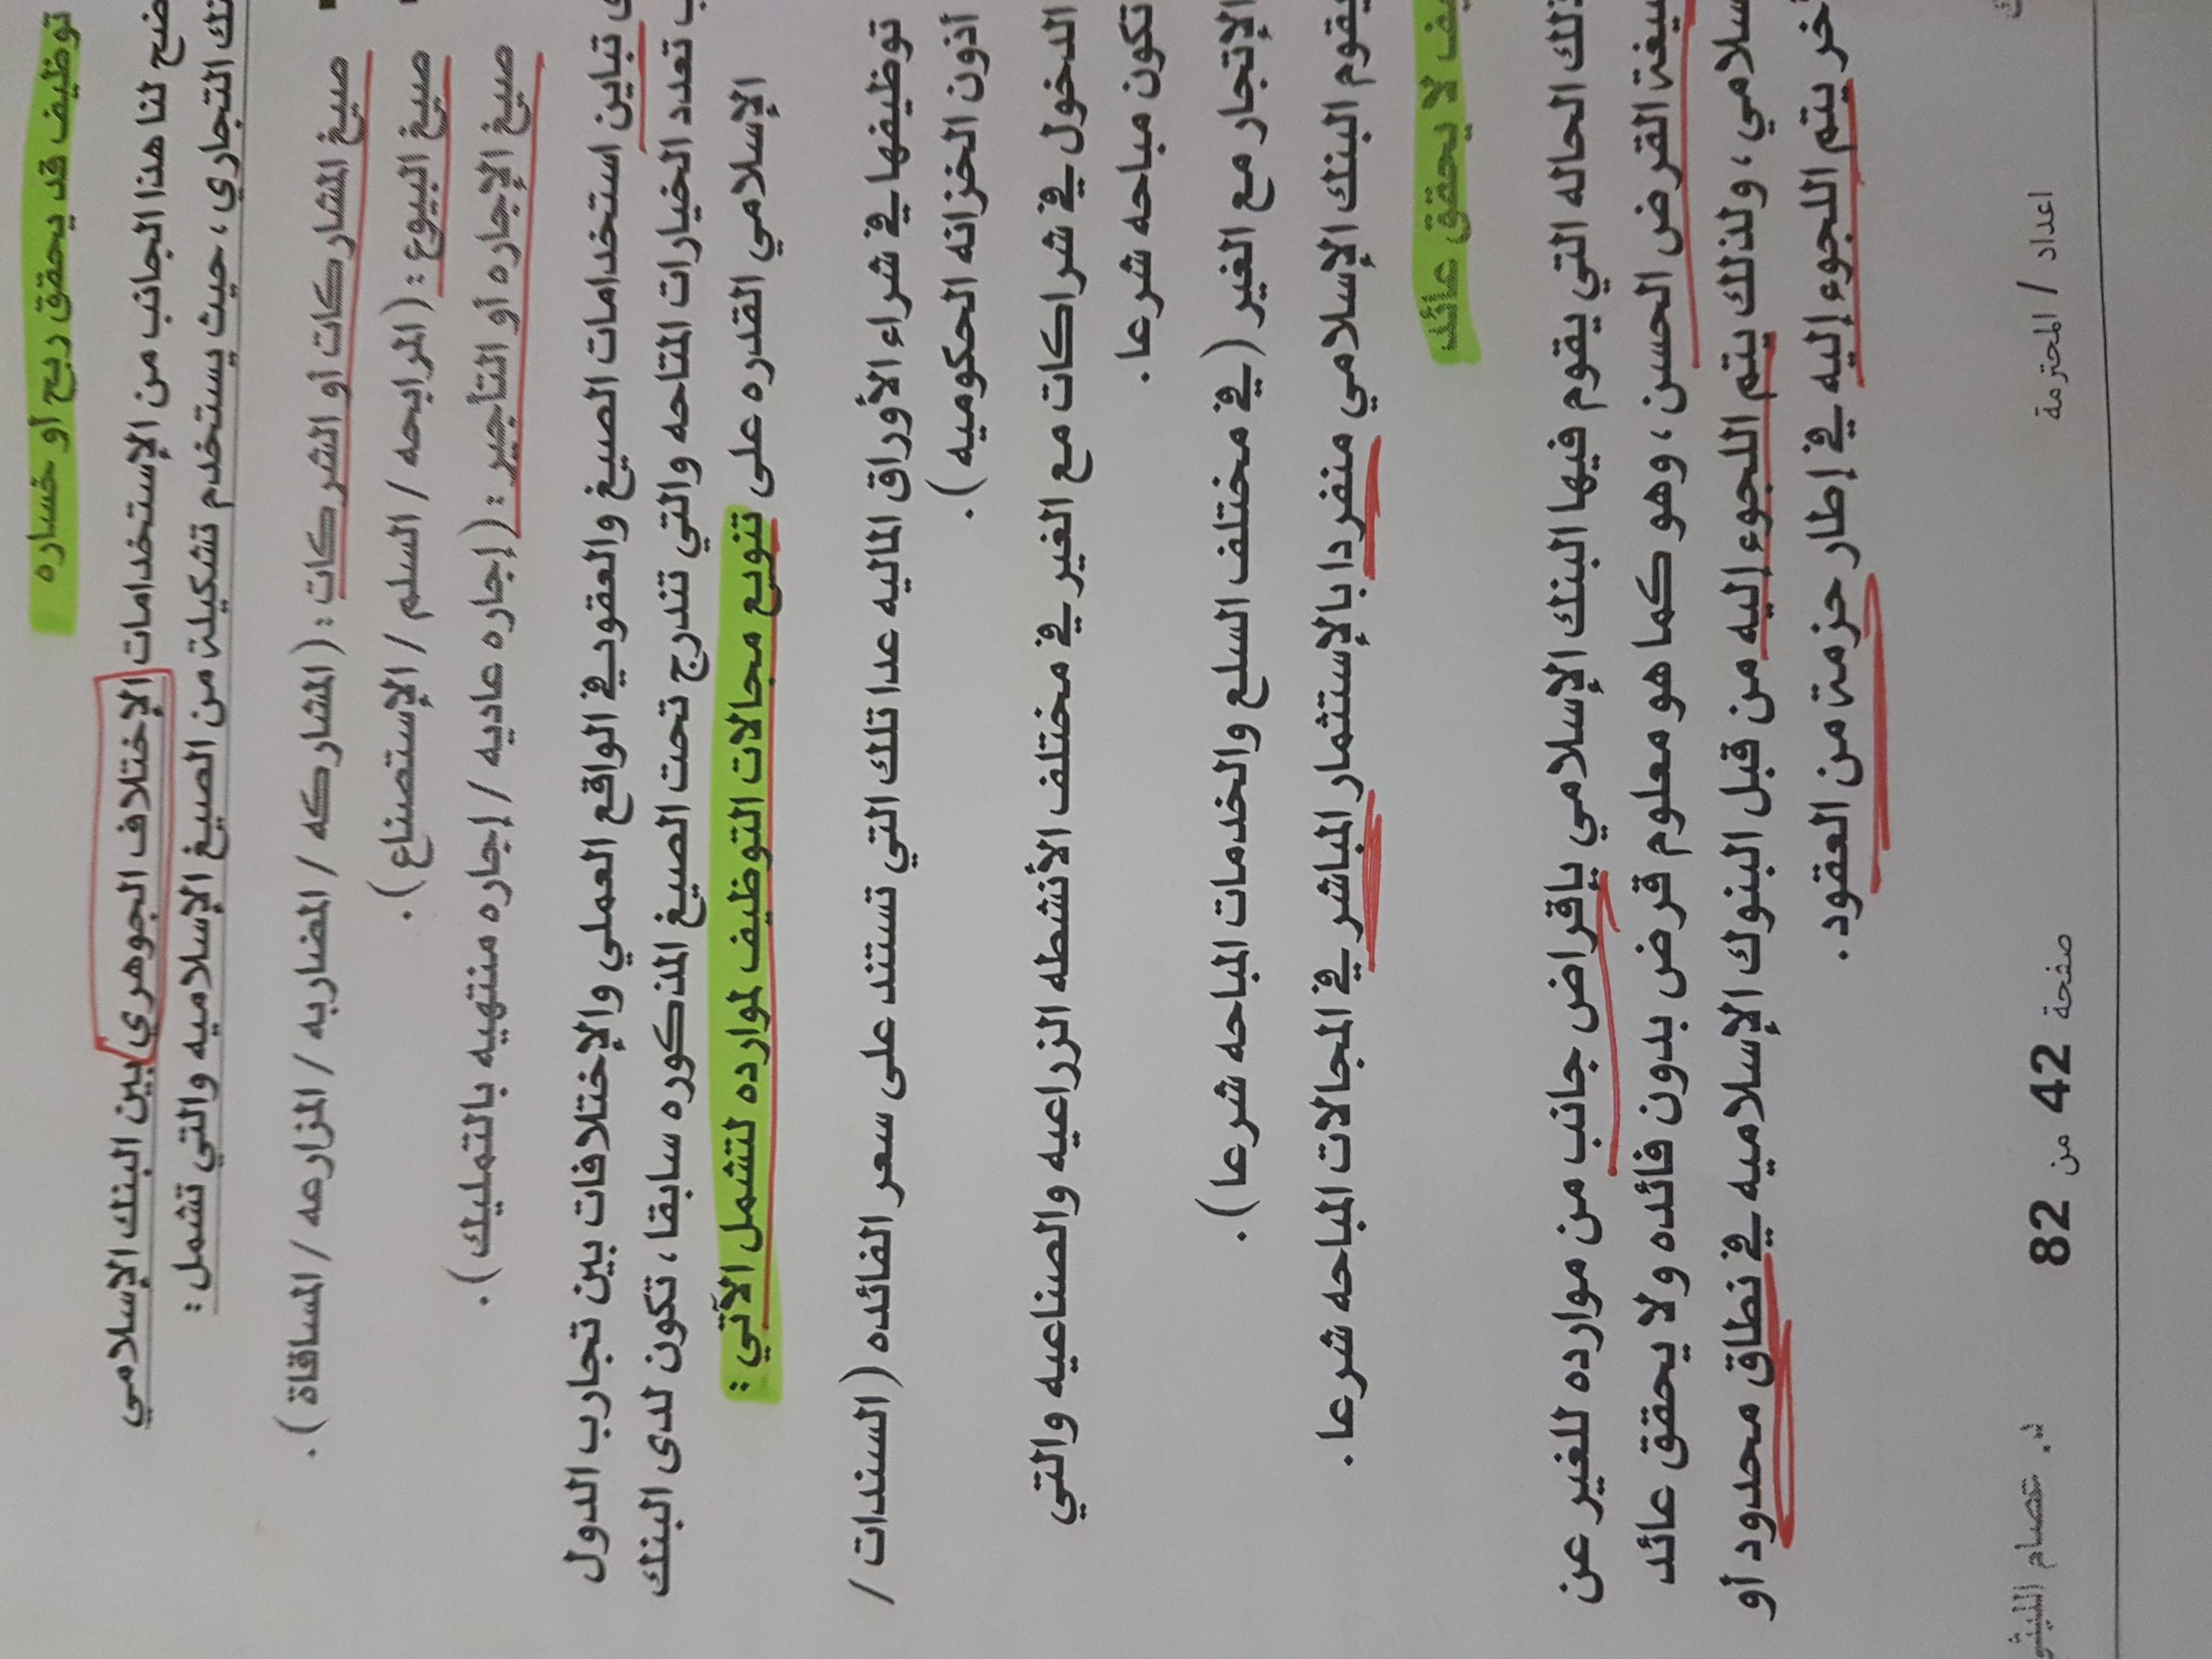 توظيف قد يحقق ربح أو خساره
ضح لنا هذا الجانب من الإستخدامات الإختلاف الجوهري بين البنك الإسلامي
نك التجاري، حيث يستخدم تشكيلة من الصيغ الإسلاميه والتي تشمل :
صيغ المشاركات أو الشركات : (المشاركه / المضاربه / المزارعه / المساقاة).
صيغ البيوع : (المرابحه / السلم / الإستصناع).
صيغ الإجاره أو التأجير : (إجاره عاديه / إجاره منتهيه بالتمليك).
تباين استخدامات الصيغ والعقود في الواقع العملي والإختلافات بين تجارب الدول
تعدد الخيارات المتاحه والتي تندرج تحت الصيغ المذكوره سابقا، تكون لدى البنك
الإسلامي القدره على تنويع مجالات التوظيف لموارده لتشمل الآتي :
توظيفها في شراء الأوراق الماليه عدا تلك التي تستند على سعر الفائده (السندات /
اذون الخزانه الحكوميه).
الدخول في شراكات مع الغير في مختلف الأنشطه الزراعيه والصناعيه والتي
تكون مباحه شرعا.
الإتجار مع الغير (في مختلف السلع والخدمات المباحه شرعا).
يقوم البنك الإسلامي منفردا بالإستثمار المباشر في المجالات المباحه شرعا.
يف لا يحقق عائد
تلك الحاله التي يقوم فيها البنك الإسلامي بإقراض جانب من موارده للغير عن
القرض الحسن، وهو كما هو معلوم قرض بدون فائده ولا يحقق عائد
سلامي، ولذلك يتم اللجوء إليه من قبل البنوك الإسلاميه في نطاق محدود أو
يتم اللجوء إليه في إطار حزمة من العقود.
اعداد / المحترمة صفحة 42 من 82 د. عصام الليثي